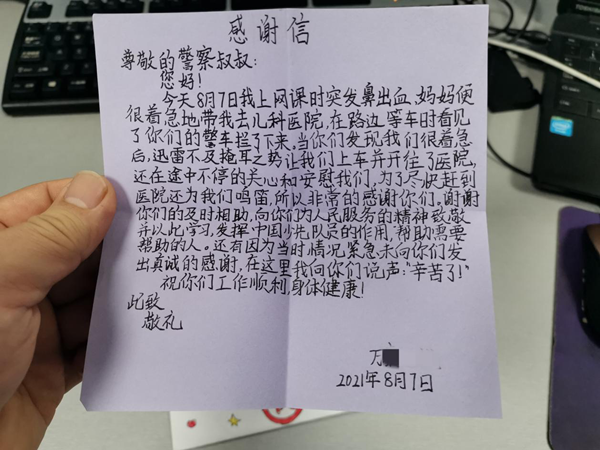 感谢信
尊敬的警察叔叔：
您好！
今天8月7日我上网课时突发鼻出血，妈妈便
很着急地带我去儿科医院，在路边等车时看见
了你们的警车拦了下来，当你们发现我们很着急
后，迅雷不及掩耳之势让我们上车并开往了医院，
还在途中不停的关心和安慰我们，为了尽快赶到
医院还为我们鸣笛，所以非常的感谢你们。谢谢
你们的及时相助，向你们为人民服务的精神致敬
并以此学习，发挥中国少先队员的作用，帮助需要
帮助的人。还有因为当时情况紧急未向你们发
出真诚的感谢，在这里我向你们说声：“辛苦了！”
祝你们工作顺利，身体健康！
此致
敬礼
万
2021年8月7日